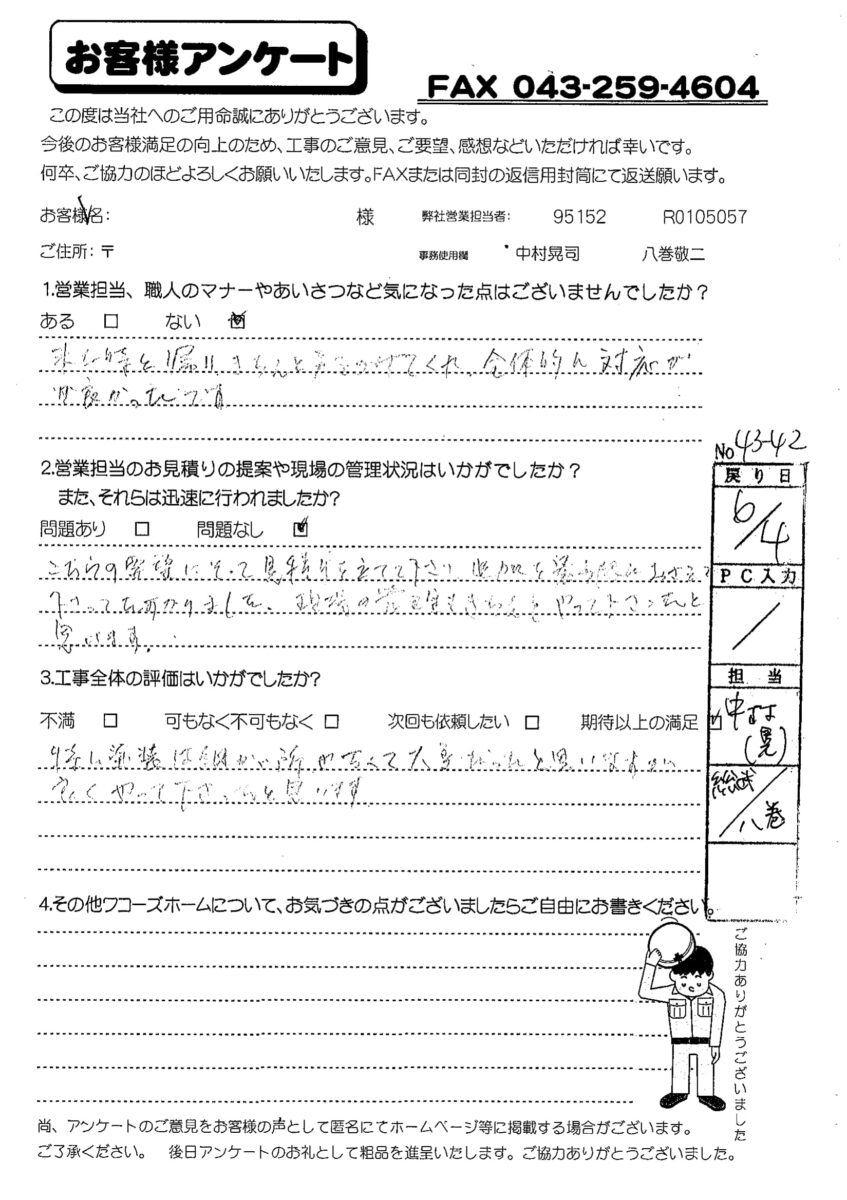 お客様アンケート
FAX 043-259-4604
この度は当社へのご用命誠にありがとうございます。
今後のお客様満足の向上のため、工事のご意見、ご要望、感想などいただければ幸いです。
何卒、ご協力のほどよろしくお願いいたします。FAXまたは同封の返信用封筒にて返送願います。
お客様名: 様 弊社営業担当者: 95152 R0105057
ご住所:〒 事務使用欄 中村晃司 八巻敬二
1.営業担当、職人のマナーやあいさつなど気になった点はございませんでしたか?
ある □ ない ☑
来た時と帰り、きちんと声をかけてくれ、全体的に対応が
良かったです
2.営業担当のお見積りの提案や現場の管理状況はいかがでしたか?
また、それらは迅速に行われましたか?
問題あり □ 問題なし ☑
こちらの希望にそって見積りを立てて下さり、追加を最小限におさえて
下さって助かりました。現場の管理もきちんとやって下さったと
思います。
3.工事全体の評価はいかがでしたか?
不満 □ 可もなく不可もなく □ 次回も依頼したい □ 期待以上の満足 ☑
特に塗装は細かい所が多くて大変だったと思いますが
良くやって下さったと思います。
4.その他ワコーズホームについて、お気づきの点がございましたらご自由にお書きください。
No 43-42
戻り日
6/4
PC入力
/
担当
中村
(晃)
総武
/八巻
ご協力ありがとうございました
尚、アンケートのご意見をお客様の声として匿名にてホームページ等に掲載する場合がございます。
ご了承ください。 後日アンケートのお礼として粗品を進呈いたします。ご協力ありがとうございました。